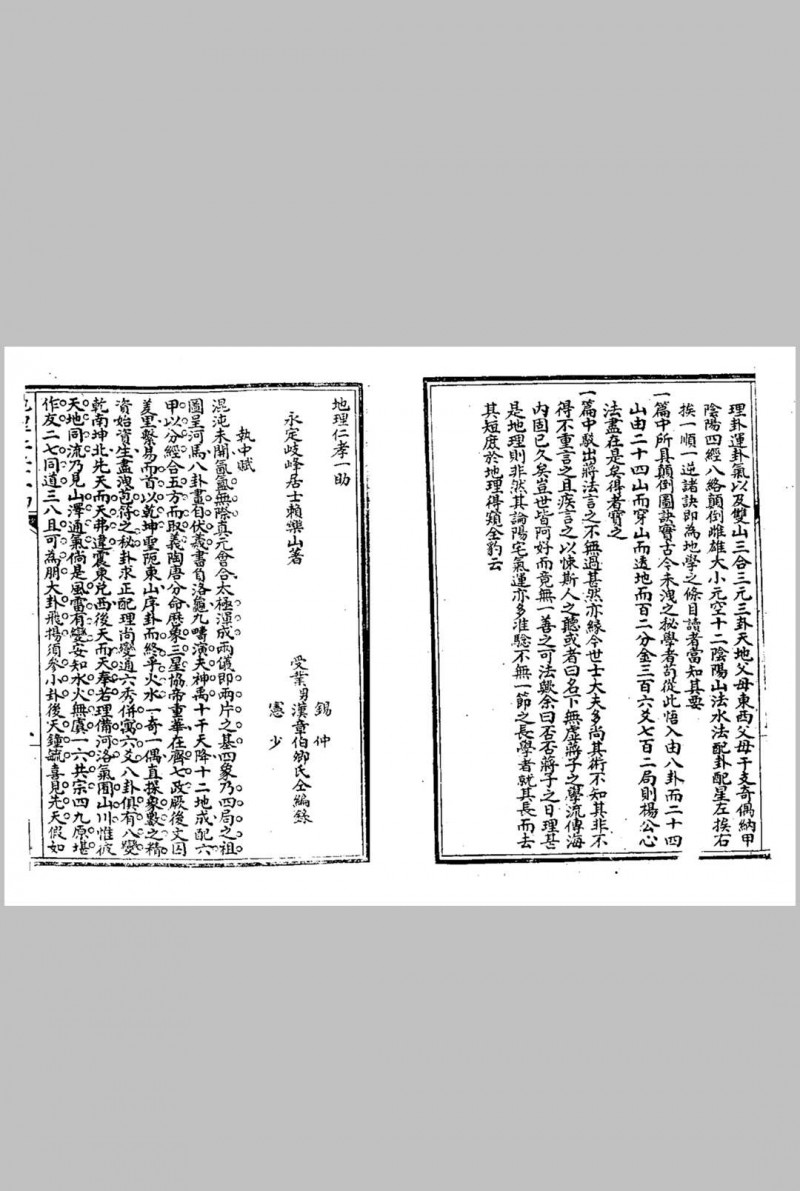 理卦運卦氣以及雙山三合三元三卦天地父母東西父母干支奇偶納甲
陰陽四經八絡顛倒雌雄大小元空十二陰陽山法水法配卦配星左挨右
挨一順一逆諸訣即為地學之條目讀者當知其要
一篇中所具顛倒圖訣實古今未洩之秘學者苟從此悟入由八卦而二十四
山由二十四山而穿山而透地而百二分金三百六爻七百二局則楊公心
法盡在是矣得者寶之
一篇中駁出蔣法言之不無過甚然亦緣今世士大夫多尚其術不知其非不
得不重言之且疾言之以悚斯人之聽或者曰名下無虛蔣子之學流傳海
內固已久矣豈世皆阿好而竟無一善之可法歟余曰否否蔣子之日理甚
是地理則非然其論陽宅氣運亦多准驗不無一節之長學者就其長而去
其短庶於地理得窺全豹云
地理仁孝一助
永定岐峰居士賴樂山著
錫仲
受業男漢章伯卿氏仝編錄
憲少
執中賦
混沌未開氤氳無際真元會合太極渾成兩儀即兩片之基四象乃四局之祖
圖呈河馬八卦畫自伏羲書負洛龜九疇演夫神禹十干天降十二地成配六
甲以分經合五方而取義陶唐分命曆象三星協帝重華在齊七政厥後文囚
羑里繫易而首以乾坤聖阨東山序卦而終乎火水一奇一偶直探象數之精
資始資生盡洩苞符之秘卦求正配理尚變通六秀併寓六爻八卦俱有八變
乾南坤北先天而天弗違震東兌西後天而天奉若理備河洛氣囿山川惟彼
天地同流乃見山澤通氣倘是風雷有變安知水火無虞一六共宗四九原堪
作友二七同道三八且可為朋大卦飛揚須參小卦後天鐘毓喜見先天假如